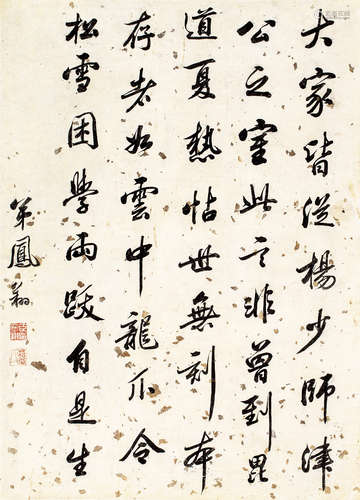 大家皆從楊少師津
公之室此言非曾到毘
道夏熱怙世無刻本
存者如雲中龍爪令
松雪困學兩跋自是生
笨鳳翰